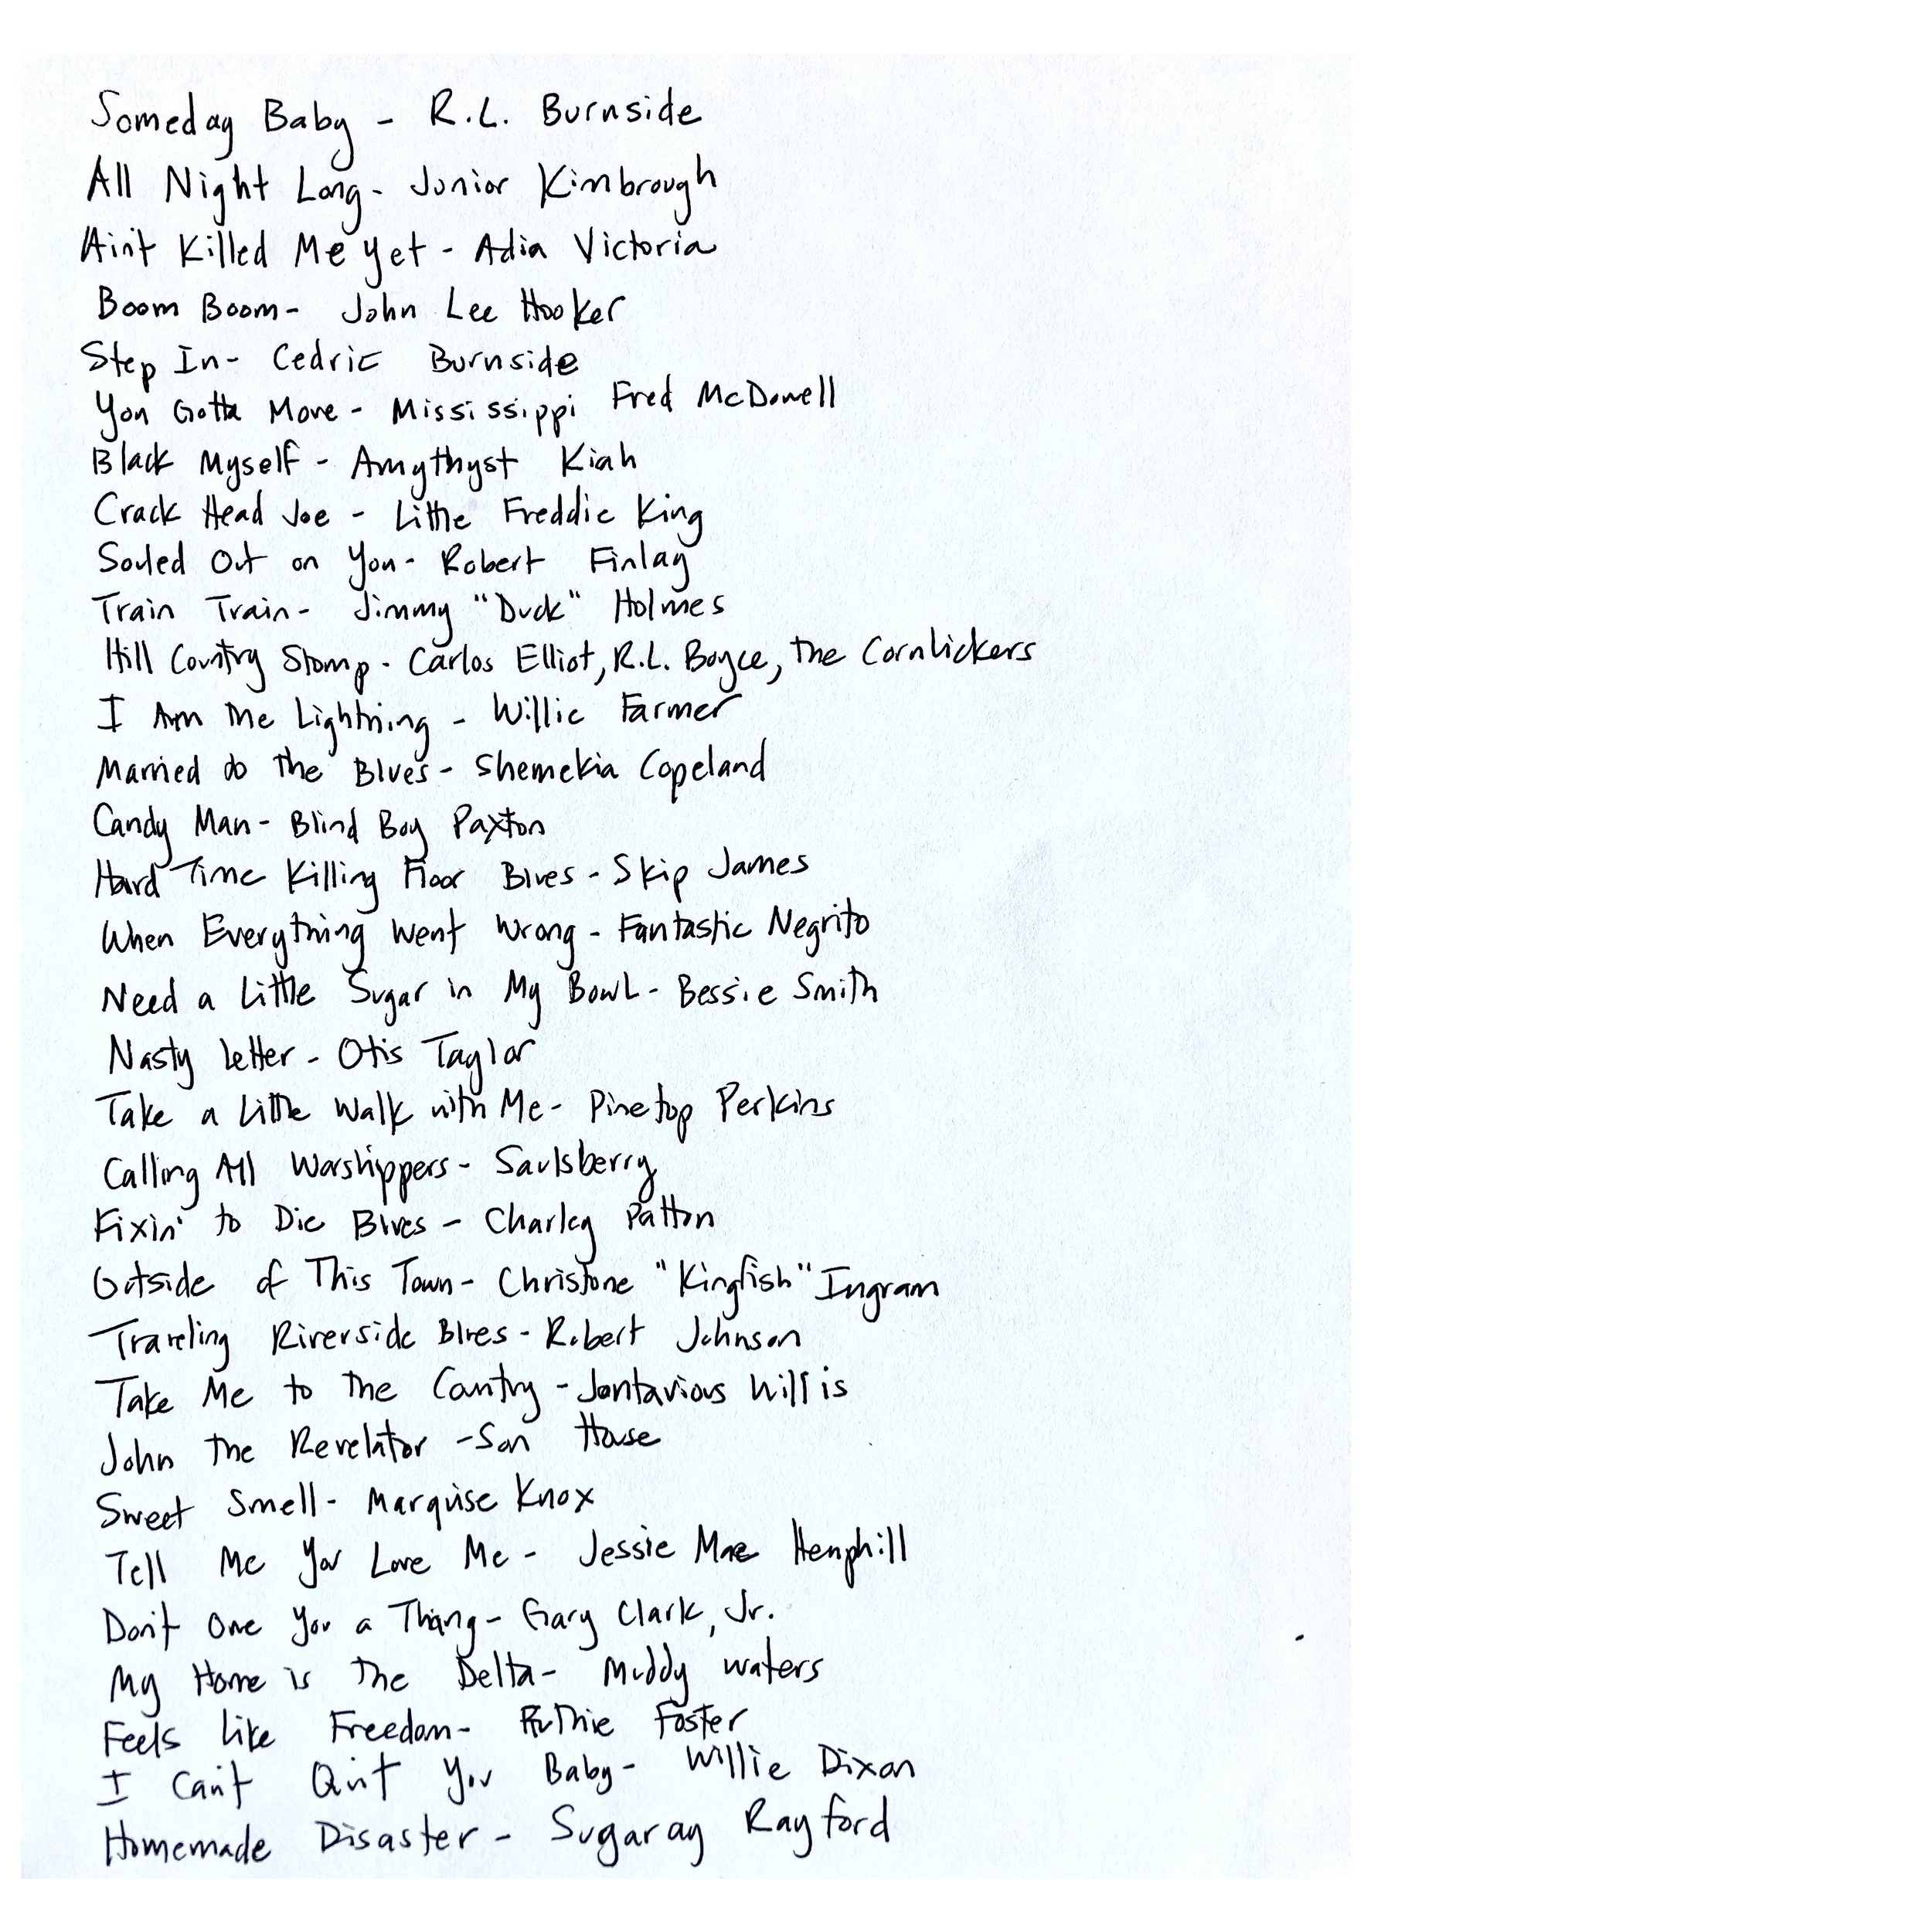 Someday Baby - R.L. Burnside
All Night Long - Junior Kimbrough
Ain't Killed Me Yet - Adia Victoria
Boom Boom - John Lee Hooker
Step In - Cedric Burnside
You Gotta Move - Mississippi Fred McDowell
Black Myself - Amythyst Kiah
Crack Head Joe - Little Freddie King
Souled Out on You - Robert Finlay
Train Train - Jimmy "Duck" Holmes
Hill Country Stomp - Carlos Elliot, R.L. Boyce, the Cornlickers
I Am the Lightning - Willie Farmer
Married to the Blues - Shemekia Copeland
Candy Man - Blind Boy Paxton
Hard Time Killing Floor Blues - Skip James
When Everything Went Wrong - Fantastic Negrito
Need a Little Sugar in My Bowl - Bessie Smith
Nasty Letter - Otis Taylor
Take a Little Walk with Me - Pinetop Perkins
Calling All Worshippers - Saulsberry
Fixin' to Die Blues - Charley Patton
Outside of This Town - Christone "Kingfish" Ingram
Traveling Riverside Blues - Robert Johnson
Take Me to the Country - Jontavious Willis
John the Revelator - Son House
Sweet Smell - Marquise Knox
Tell Me You Love Me - Jessie Mae Hemphill
Don't Owe You a Thang - Gary Clark, Jr.
My Home is the Delta - Muddy Waters
Feels Like Freedom - Ruthie Foster
I Can't Quit You Baby - Willie Dixon
Homemade Disaster - Sugaray Rayford